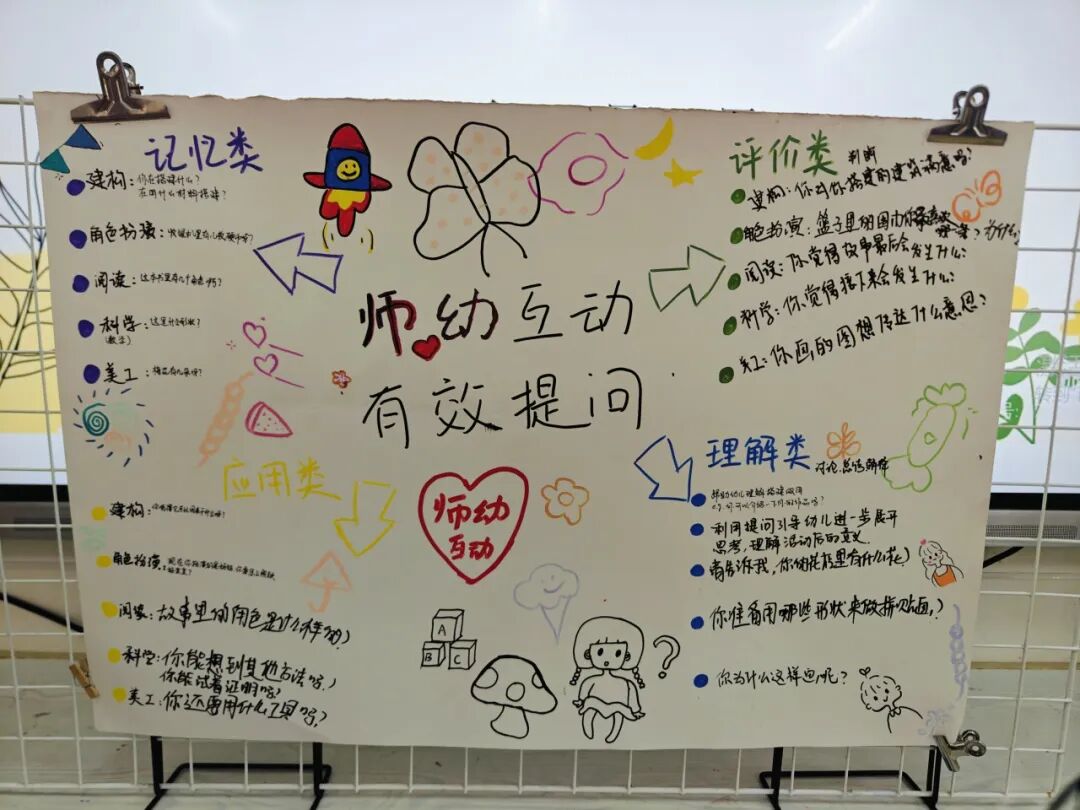 记忆类
建构：你在搭建什么？
在用什么材料搭建？
角色扮演：
阅读：这本书里有几个角色呀？
科学：这是什么形状？
(数学)
美工：
师幼互动
有效提问
评价类 判断
建构：你对你搭建的建筑满意吗？
角色扮演：篮子里的围巾 为什么？
阅读：你觉得故事最后会发生什么？
科学：你觉得接下来会发生什么？
美工：你画的图想传达什么意思？
应用类
建构：
角色扮演：
阅读：故事里的角色是什么样的？
科学：你能想到其他方法吗？
你能试着证明吗？
美工：你还要用什么工具吗？
师幼
互动
A
B C
?
理解类
讨论.总结.解释
帮助幼儿理解搭建作用
利用提问引导幼儿进一步展开
思考，理解活动后的意义
请告诉我，你的花瓶里有什么花？
你准备用哪些形状来做拼贴画？
你为什么这样画呢？